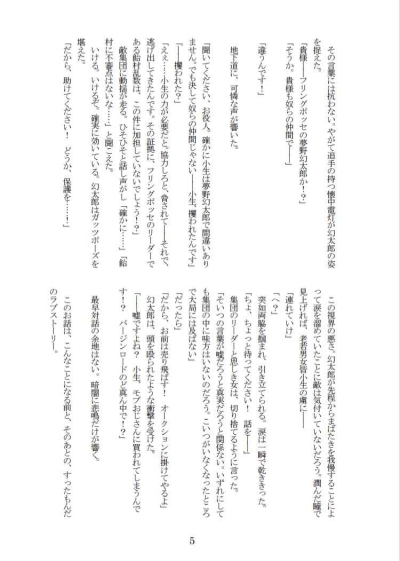 その言葉には抗わない。やがて追手の持つ懐中電灯が幻太郎の姿
を捉えた。
「貴様――フリングポッセの夢野幻太郎か！？」
「そうか、貴様も奴らの仲間で――」
「違うんです！」
地下道に、可憐な声が響いた。
「聞いてください、お役人。確かに小生は夢野幻太郎で間違いあり
ません。でも決して奴らの仲間じゃない――小生、攫われたんです」
「――攫われた？」
「ええ……小生の力が必要だと、協力しろと、脅されて――それで、
逃げ出してきたんです。その証拠に、フリングポッセのリーダーで
ある飴村乱数は、この件に加担していないでしょう！？」
敵集団に動揺が走る。ひそひそと話し声がし「確かに……」「飴
村に不審点はないな……」と聞こえた。
いける、いけるぞ。確実に効いている。幻太郎はガッツポーズを
堪えた。
「だから、助けてください！　どうか、保護を……！」
この視界の悪さ、幻太郎が先程からまばたきを我慢することによ
って涙を溜めていたことに敵は気付いていないだろう。潤んだ瞳で
見上げれば、老若男女皆小生の虜に――
「連れていけ」
「へ？」
突如両脇を掴まれ、引き立てられる。涙は一瞬で乾ききった。
「ちょ、ちょっと待ってください！　話を――」
集団のリーダーと思しき女は、切り捨てるように言った。
「そいつの言葉が嘘だろうと真実だろうと関係ない。いずれにして
も集団の中に味方はいないのだろう。こいつがいなくなったところ
で大局には及ばない」
「だったら」
「だから、お前は売り飛ばす！　オークションに掛けてやるよ」
幻太郎は、頭を殴られたような衝撃を受けた。
「――嘘ですよね？　小生、モブおじさんに買われてしまうんで
す！？　バージンロードのど真ん中で！？」
最早対話の余地はない。暗闇に悲鳴だけが響く。
このお話は、こんなことになる前と、そのあとの、すったもんだ
のラブストーリー。
5